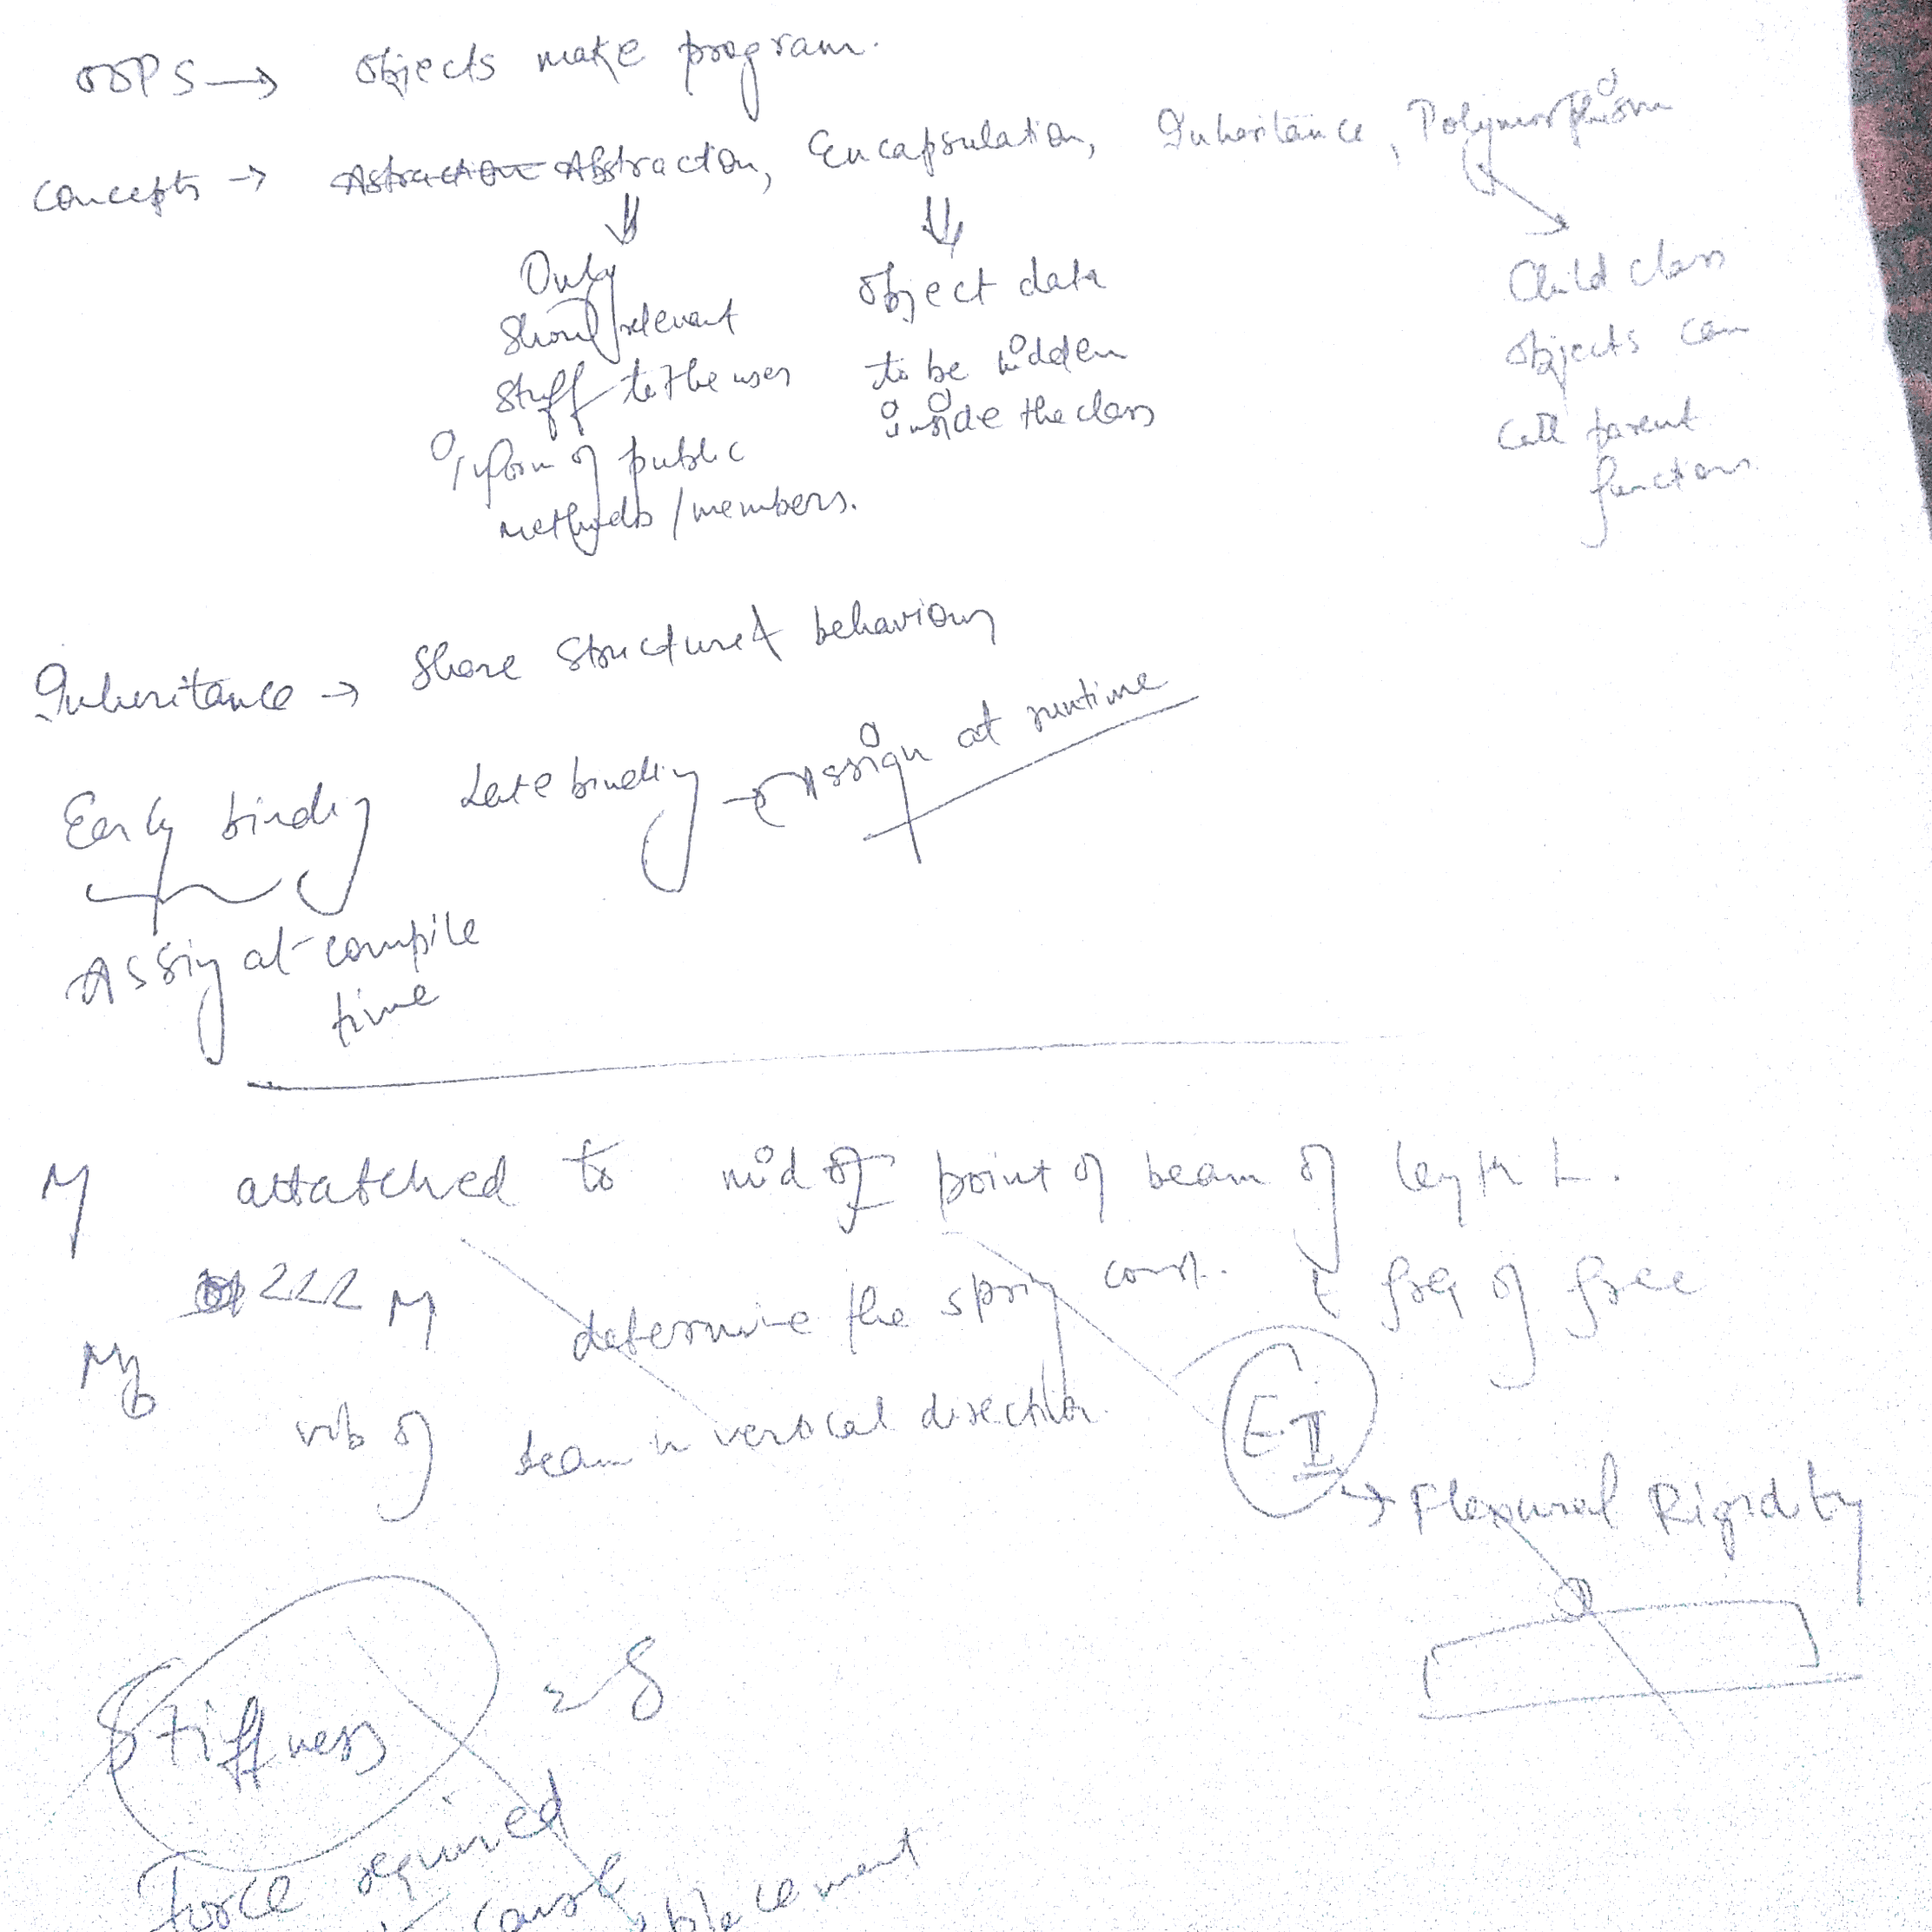 OOPS → Objects make program.
Concepts → Astraction Abstraction, Encapsulation, Inheritance, Polymorphism
Only
Show relevant
stuff to the user
In form of public
methods / members.
Object data
to be hidden
inside the class
Child class
objects can
call parent
functions
Inheritance → Share structure & behaviour
Early binding Late binding → Assign at runtime
Assig at compile
time
M attatched to mid of point of beam of length L.
Mb <<< M determine the spring const. & freq of free
vib of beam in vertical direction.
EI → Flexural Rigidity
Stiffness = S
Force required
cause